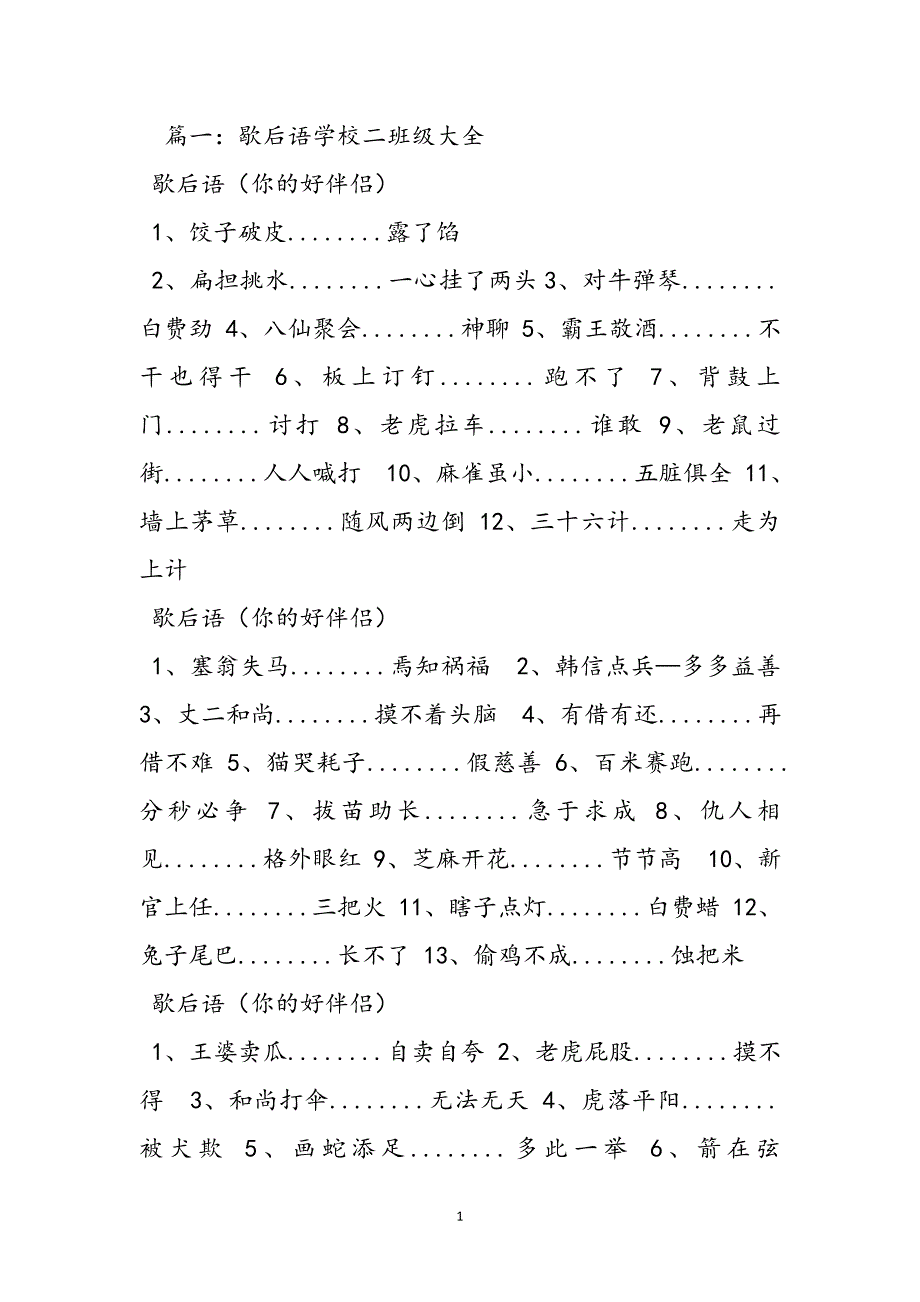 篇一：歇后语学校二班级大全
歇后语（你的好伴侣）
1、饺子破皮........露了馅
2、扁担挑水........一心挂了两头 3、对牛弹琴........
白费劲 4、八仙聚会........神聊 5、霸王敬酒........不
干也得干 6、板上订钉........跑不了 7、背鼓上
门........讨打 8、老虎拉车........谁敢 9、老鼠过
街........人人喊打 10、麻雀虽小........五脏俱全 11、
墙上茅草........随风两边倒 12、三十六计........走为
上计
歇后语（你的好伴侣）
1、塞翁失马........焉知祸福 2、韩信点兵—多多益善
3、丈二和尚........摸不着头脑 4、有借有还........再
借不难 5、猫哭耗子........假慈善 6、百米赛跑........
分秒必争 7、拔苗助长........急于求成 8、仇人相
见........格外眼红 9、芝麻开花........节节高 10、新
官上任........三把火 11、瞎子点灯........白费蜡 12、
兔子尾巴........长不了 13、偷鸡不成........蚀把米
歇后语（你的好伴侣）
1、王婆卖瓜........自卖自夸 2、老虎屁股........摸不
得 3、和尚打伞........无法无天 4、虎落平阳........
被犬欺 5、画蛇添足........多此一举 6、箭在弦
1